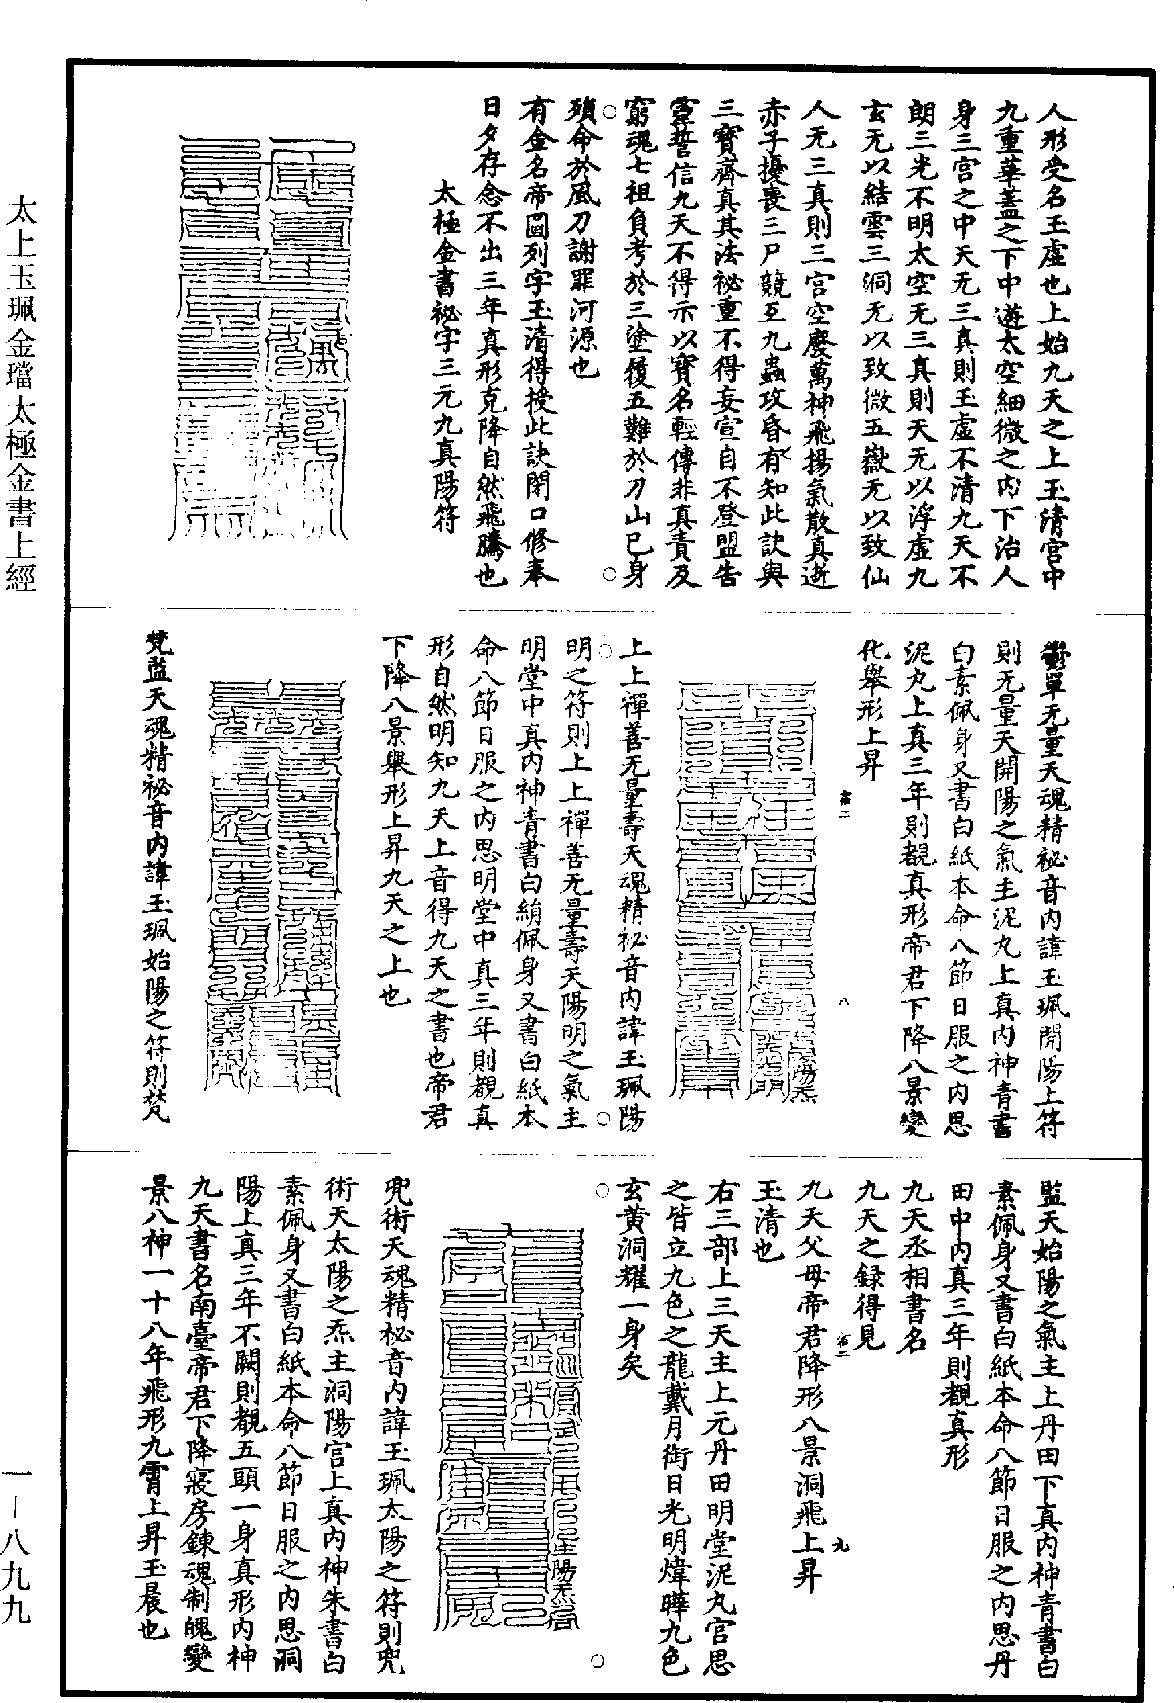 人形受名玉虛也上始九天之上玉清宮中
九重華蓋之下中遊太空細微之內下治人
身三宮之中天无三真則玉虛不清九天不
朗三光不明太空无三真則天无以浮虛九
玄无以結雲三洞无以致微五嶽无以致仙
人无三真則三宮空廢萬神飛揚氣散真逝
赤子擾喪三尸競互九蟲攻昏有知此訣與
三寶齊真其法祕重不得妄宣自不登盟告
靈誓信九天不得示以寶名輕傳非真責及
窮魂七祖負考於三塗履五難於刀山已身
殞命於風刀謝罪河源也
有金名帝圖列字玉清得授此訣閉口修奉
日夕存念不出三年真形克降自然飛騰也
太極金書祕字三元九真陽符
鬱單无量天魂精祕音內諱玉珮開陽上符
則无量天開陽之氣主泥丸上真內神青書
白素佩身又書白紙本命八節日服之內思
泥丸上真三年則覩真形帝君下降八景變
化舉形上昇
八
上上禪善无量壽天魂精祕音內諱玉珮陽
明之符則上上禪善无量壽天陽明之氣主
明堂中真內神青書白絹佩身又書白紙本
命八節日服之內思明堂中真三年則覩真
形自然明知九天上音得九天之書也帝君
下降八景舉形上昇九天之上也
梵監天魂精祕音內諱玉珮始陽之符則梵
監天始陽之氣主上丹田下真內神青書白
素佩身又書白紙本命八節日服之內思丹
田中內真三年則覩真形
九天丞相書名
九天之錄得見
九天父母帝君降形八景洞飛上昇
九
玉清也
右三部上三天主上元丹田明堂泥丸宮思
之皆立九色之龍戴月銜日光明煒曄九色
玄黃洞耀一身矣
兜術天魂精祕音內諱玉珮太陽之符則兜
術天太陽之炁主洞陽宮上真內神朱書白
素佩身又書白紙本命八節日服之內思洞
陽上真三年不闕則覩五頭一身真形內神
九天書名南臺帝君下降寢房鍊魂制魄變
景八神一十八年飛形九霄上昇玉晨也
太上玉珮金璫太極金書上經
一－八九九